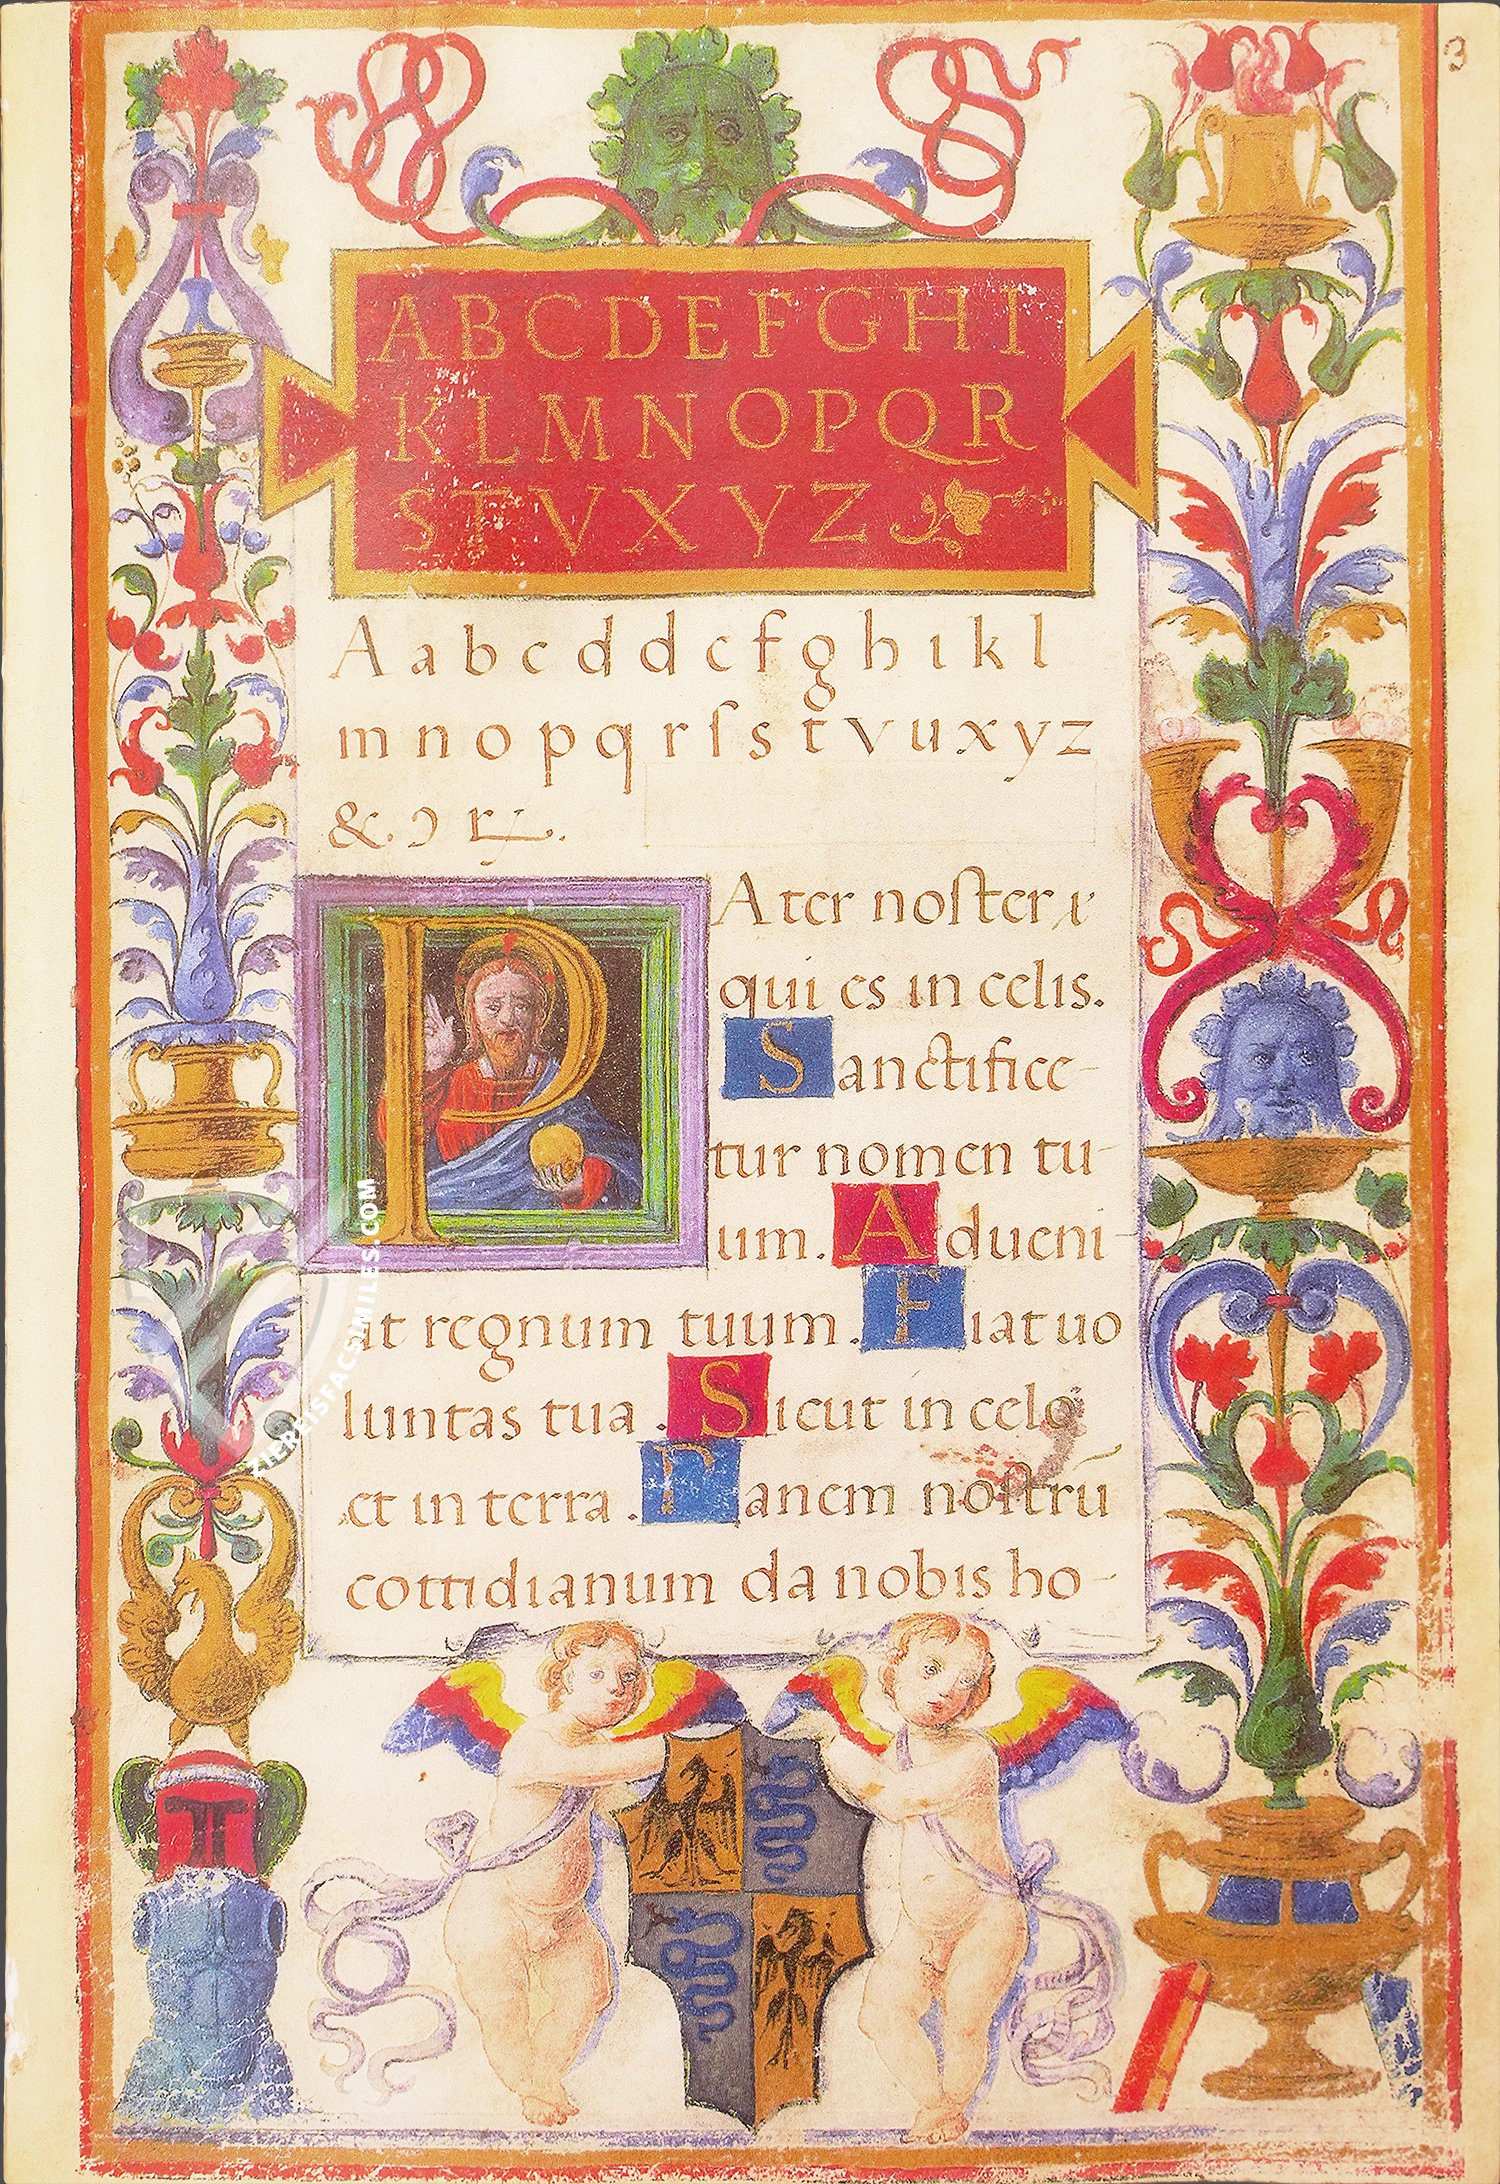 3
ABCDEFGHI
KLMNOPQR
STVXYZ
A a b c d d e f g h ı k l
m n o p q r ſ s t v u x y z
& ɔ
PAter noſter
qui es in celis.
Sanctifice-
tur nomen tu-
um. Adueni-
at regnum tuum. Fiat uo
luntas tua. Sicut in celo
et in terra. Panem noſtrū
cottidianum da nobis ho-
ZIEREISFACSIMILES.COM